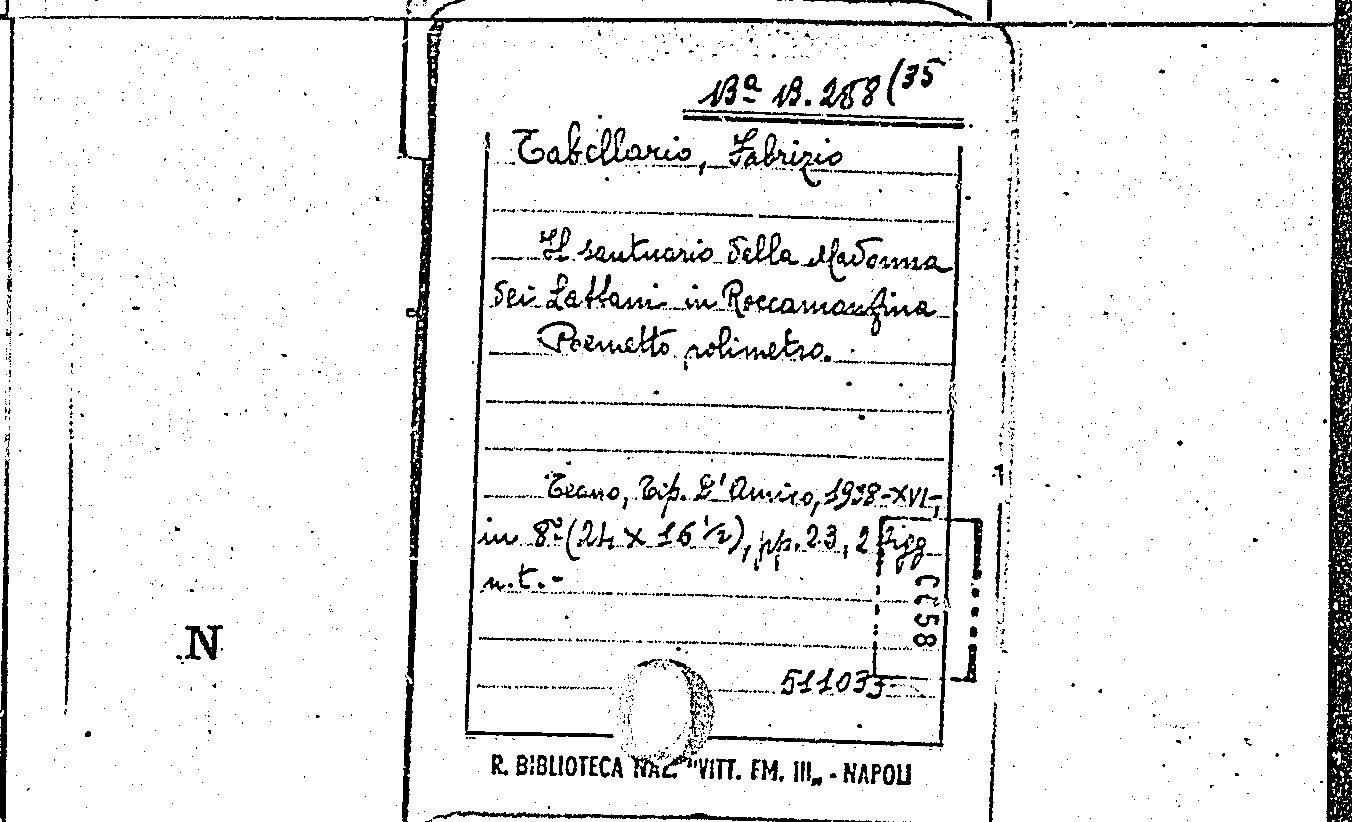 Bª B. 258 (35
Tabellario, Fabrizio
Il santuario della Madonna
dei Lattani in Roccamonfina
Poemetto polimetro.
Teano, Tip. D'Amico, 1938-XVI-,
in 8º (24 x 16 ½), pp. 23, 2 figg
n.t.-
CC58
N
511035
R. BIBLIOTECA NAZ. "VITT. EM. III„ - NAPOLI